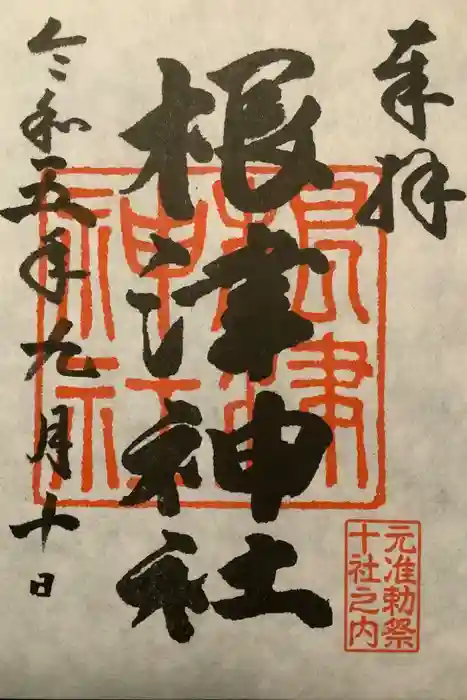 奉拝
根津神社
根津神社
元准勅祭
十社之内
令和五年九月十日